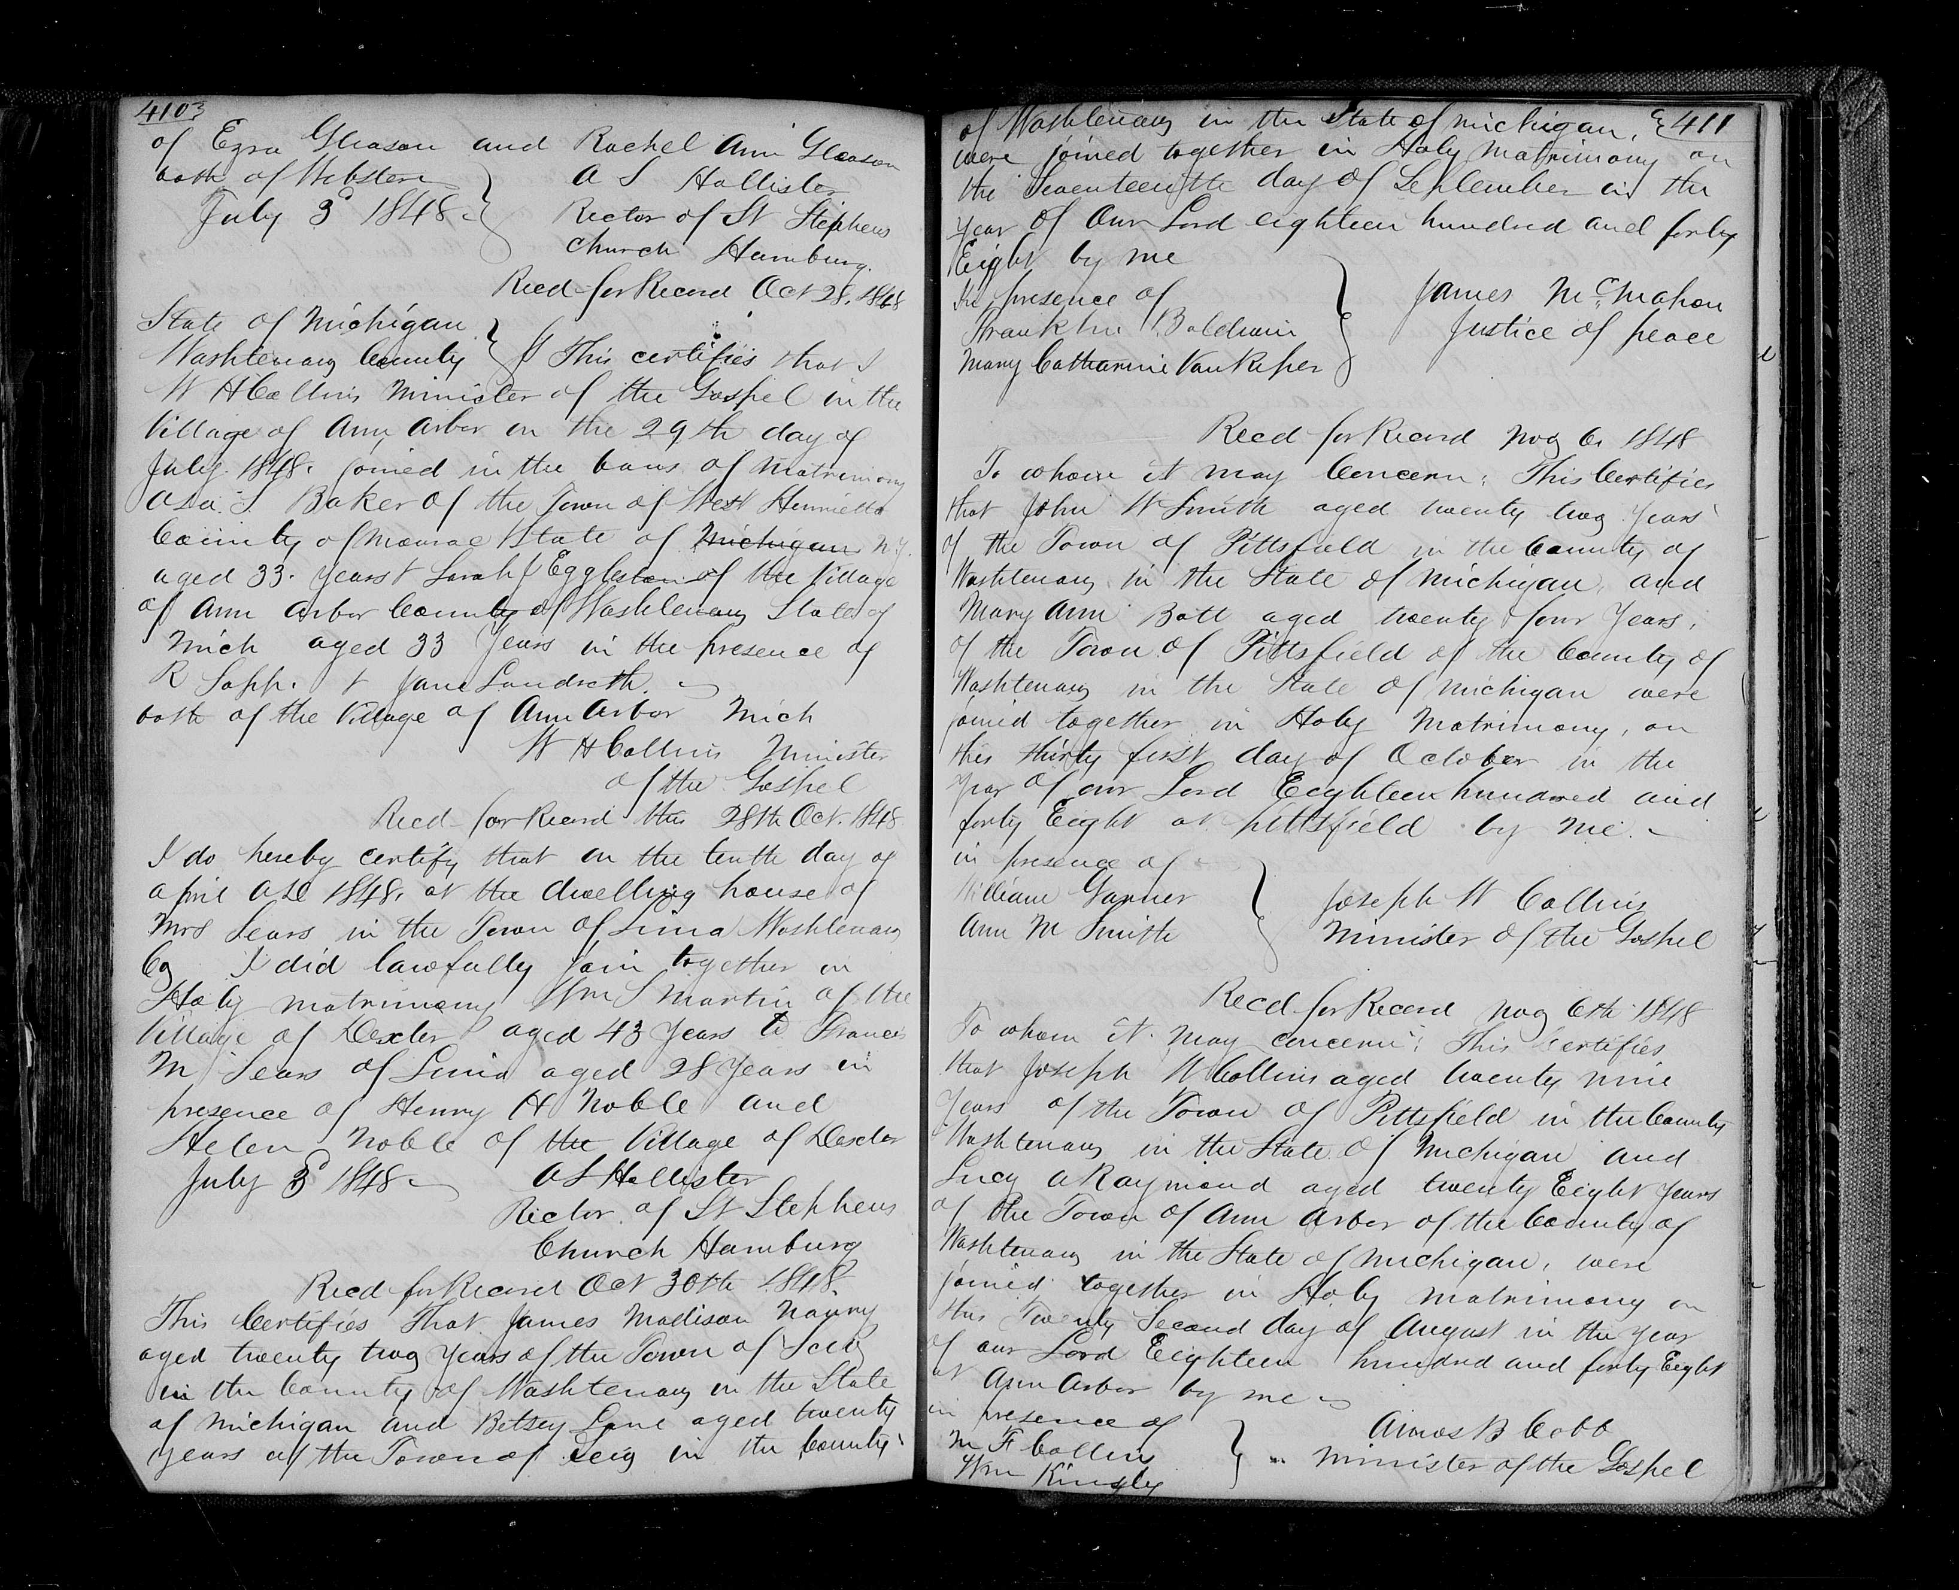 410
of Ezra Gleason and Rachel Ann Gleason
both of Webster
A S Hollister
July 3d 1848
Rector of St Stephens
Church Hamburg.
Recd for Record Oct 28, 1848
State of Michigan
Washtenaw County This certifies that I
W H Collins Minister of the Gospel in the
Village of Ann Arbor on the 29th day of
July 1848. joined in the bans of matrimony
Asa S Baker of the Town of West Henrietta
County of Monroe State of Michigan N.Y.
aged 33. years & Sarah J Eggleston of the Village
of Ann Arbor County of Washtenaw State of
Mich aged 33 Years in the presence of
R Sapp. & Jane Landreth.
both of the Village of Ann Arbor Mich
W H Collins Minister
of the Gospel
Recd for Record the 28th Oct. 1848
I do hereby certify that on the tenth day of
April AD 1848. at the dwelling house of
Mrs Sears in the Town of Lima Washtenaw
Co I did lawfully join together in
Holy matrimony Wm S Martin of the
Village of Dexter aged 43 Years to Frances
M Sears of Lima aged 28 Years in
presence of Henry H Noble and
Helen Noble of the Village of Dexter
July 3d 1848 A S Hollister
Rector of St Stephens
Church Hamburg
Recd for Record Oct 30th 1848.
This Certifies That James Madison
aged twenty two Years of the Town of Scio
in the County of Washtenaw in the State
of Michigan and Betsey Lane aged twenty
years of the Town of Scio in the County
411
of Washtenaw in the State of Michigan,
were joined together in Holy Matrimony on
the Seventeenth day of September in the
Year of Our Lord eighteen hundred and forty
Eight by me
In presence of
James McMahon
Franklin Baldwin
Justice of peace
Mary Catharine
Recd for Record Nov 6. 1848
To whom it may Concern: This Certifies
that John W Smith aged twenty two Years
of the Town of Pittsfield in the County of
Washtenaw in the State of Michigan, and
Mary Ann Bott aged twenty four Years,
of the Town of Pittsfield of the County of
Washtenaw in the State of Michigan were
joined together in Holy Matrimony, on
this thirty first day of October in the
Year of our Lord Eighteen hundred and
forty Eight at Pittsfield by me.
in presence of
William Garner
Joseph W Collins
Ann M Smith
Minister of the Gospel
Recd for Record Nov 6th 1848
To whom it may concern: This Certifies
that Joseph W Collins aged twenty nine
Years of the Town of Pittsfield in the County
Washtenaw in the State of Michigan and
Lucy A Raymond aged twenty Eight Years
of the Town of Ann Arbor of the County of
Washtenaw in the State of Michigan, were
joined together in Holy Matrimony on
this Twenty Second day of August in the Year
of our Lord Eighteen hundred and forty Eight
at Ann Arbor by me
in presence of
Amos B Cobb
M F Collins
Minister of the Gospel
Wm Kingsley